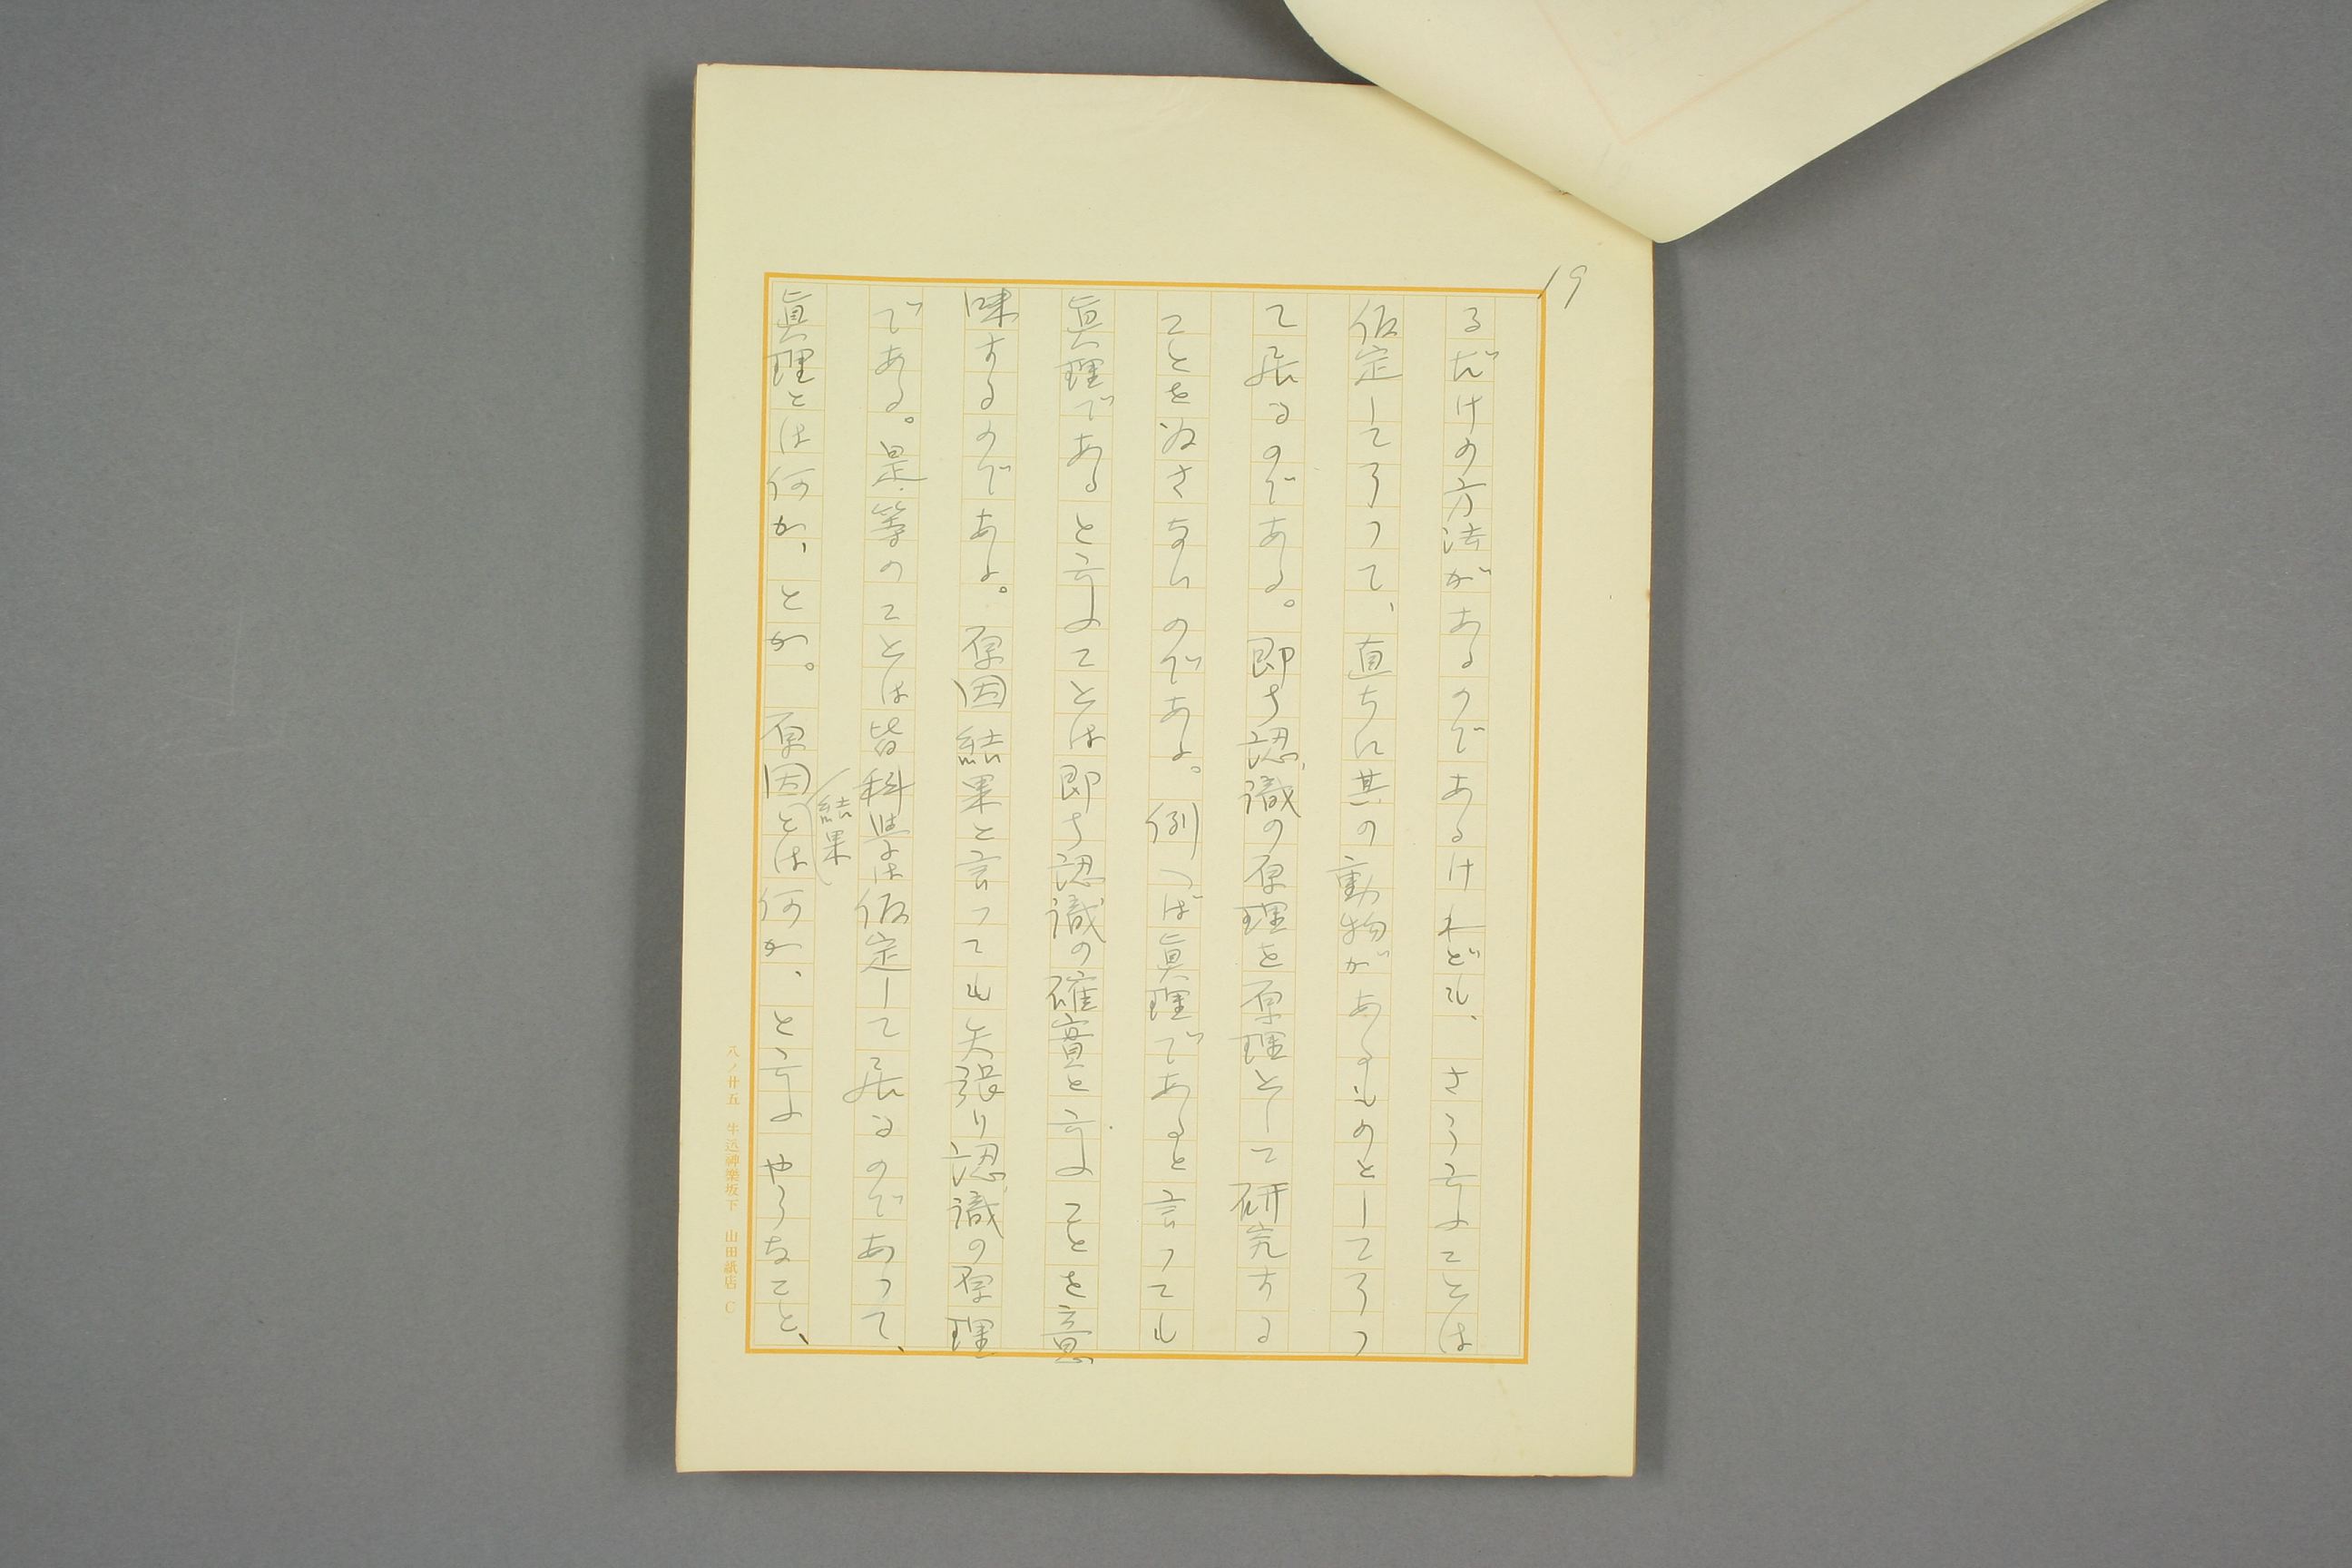 19
るだけの方法があるのであるけれども、さう言ふことは
仮定してろつて、直ちに其の動物があるものとしてろつ
て居るのである。即ち認識の原理を原理として研究する
ことを為さないのである。例へば眞理であると言つても
眞理であると言ふことは即ち認識の確實と言ふことを意
味するのである。原因結果と言つても矢張り認識の原理
である。是等のことは皆科学は仮定して居るのであつて、
眞理とは何か、とか。原因結果とは何か、と言ふやうなこと、
八ノ廿五 牛込神樂坂下 山田紙店 C